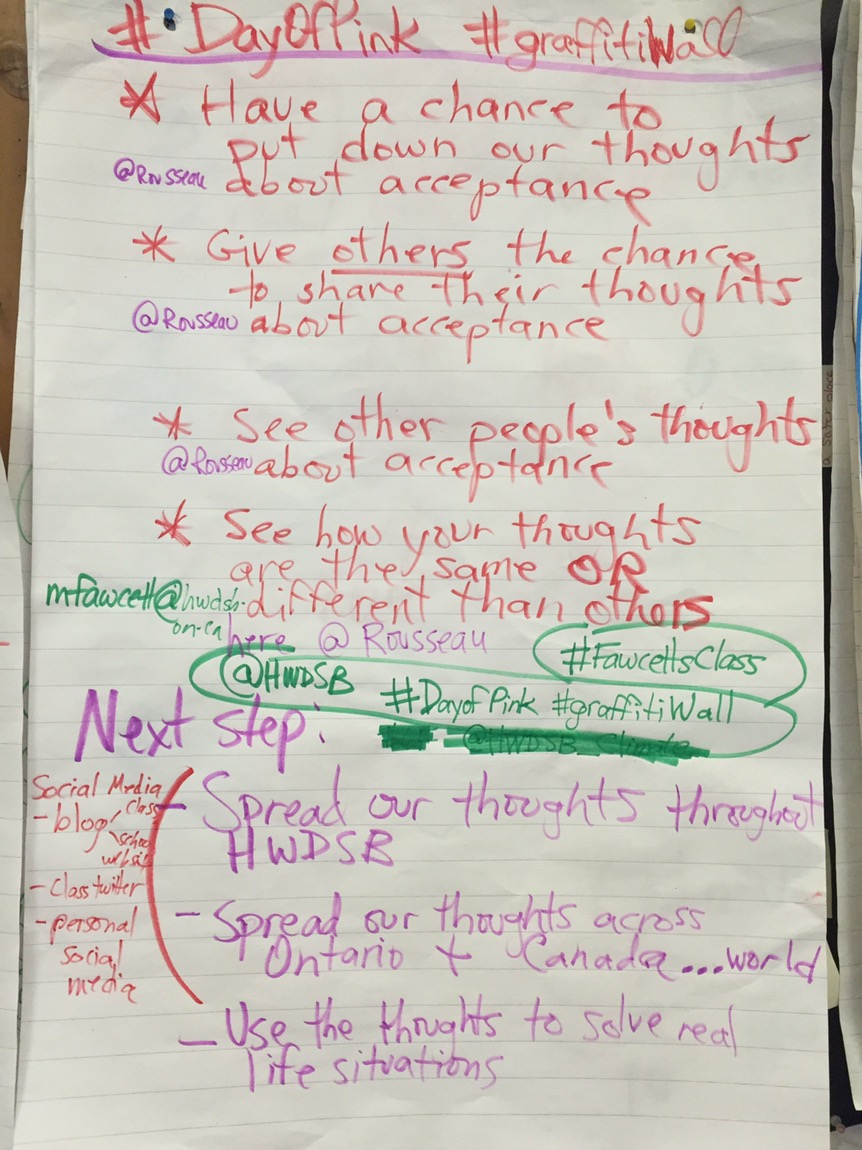 # DayOfPink #graffitiWall
* Have a chance to
put down our thoughts
@Rousseau about acceptance
* Give others the chance
to share their thoughts
@Rousseau about acceptance
* See other people's thoughts
@Rousseau about acceptance
* See how your thoughts
are the same OR
mfawcett@hwdsb. different than others
on.ca
here @ Rousseau
#FawcettsClass
@HWDSB
#DayofPink #graffitiWall
@HWDSB_Climate
Next step:
Social Media
- blog class
school
website
- Class twitter
- personal
social
media
- Spread our thoughts throughout
HWDSB
- Spread our thoughts across
Ontario + Canada...world
- Use the thoughts to solve real
life situations